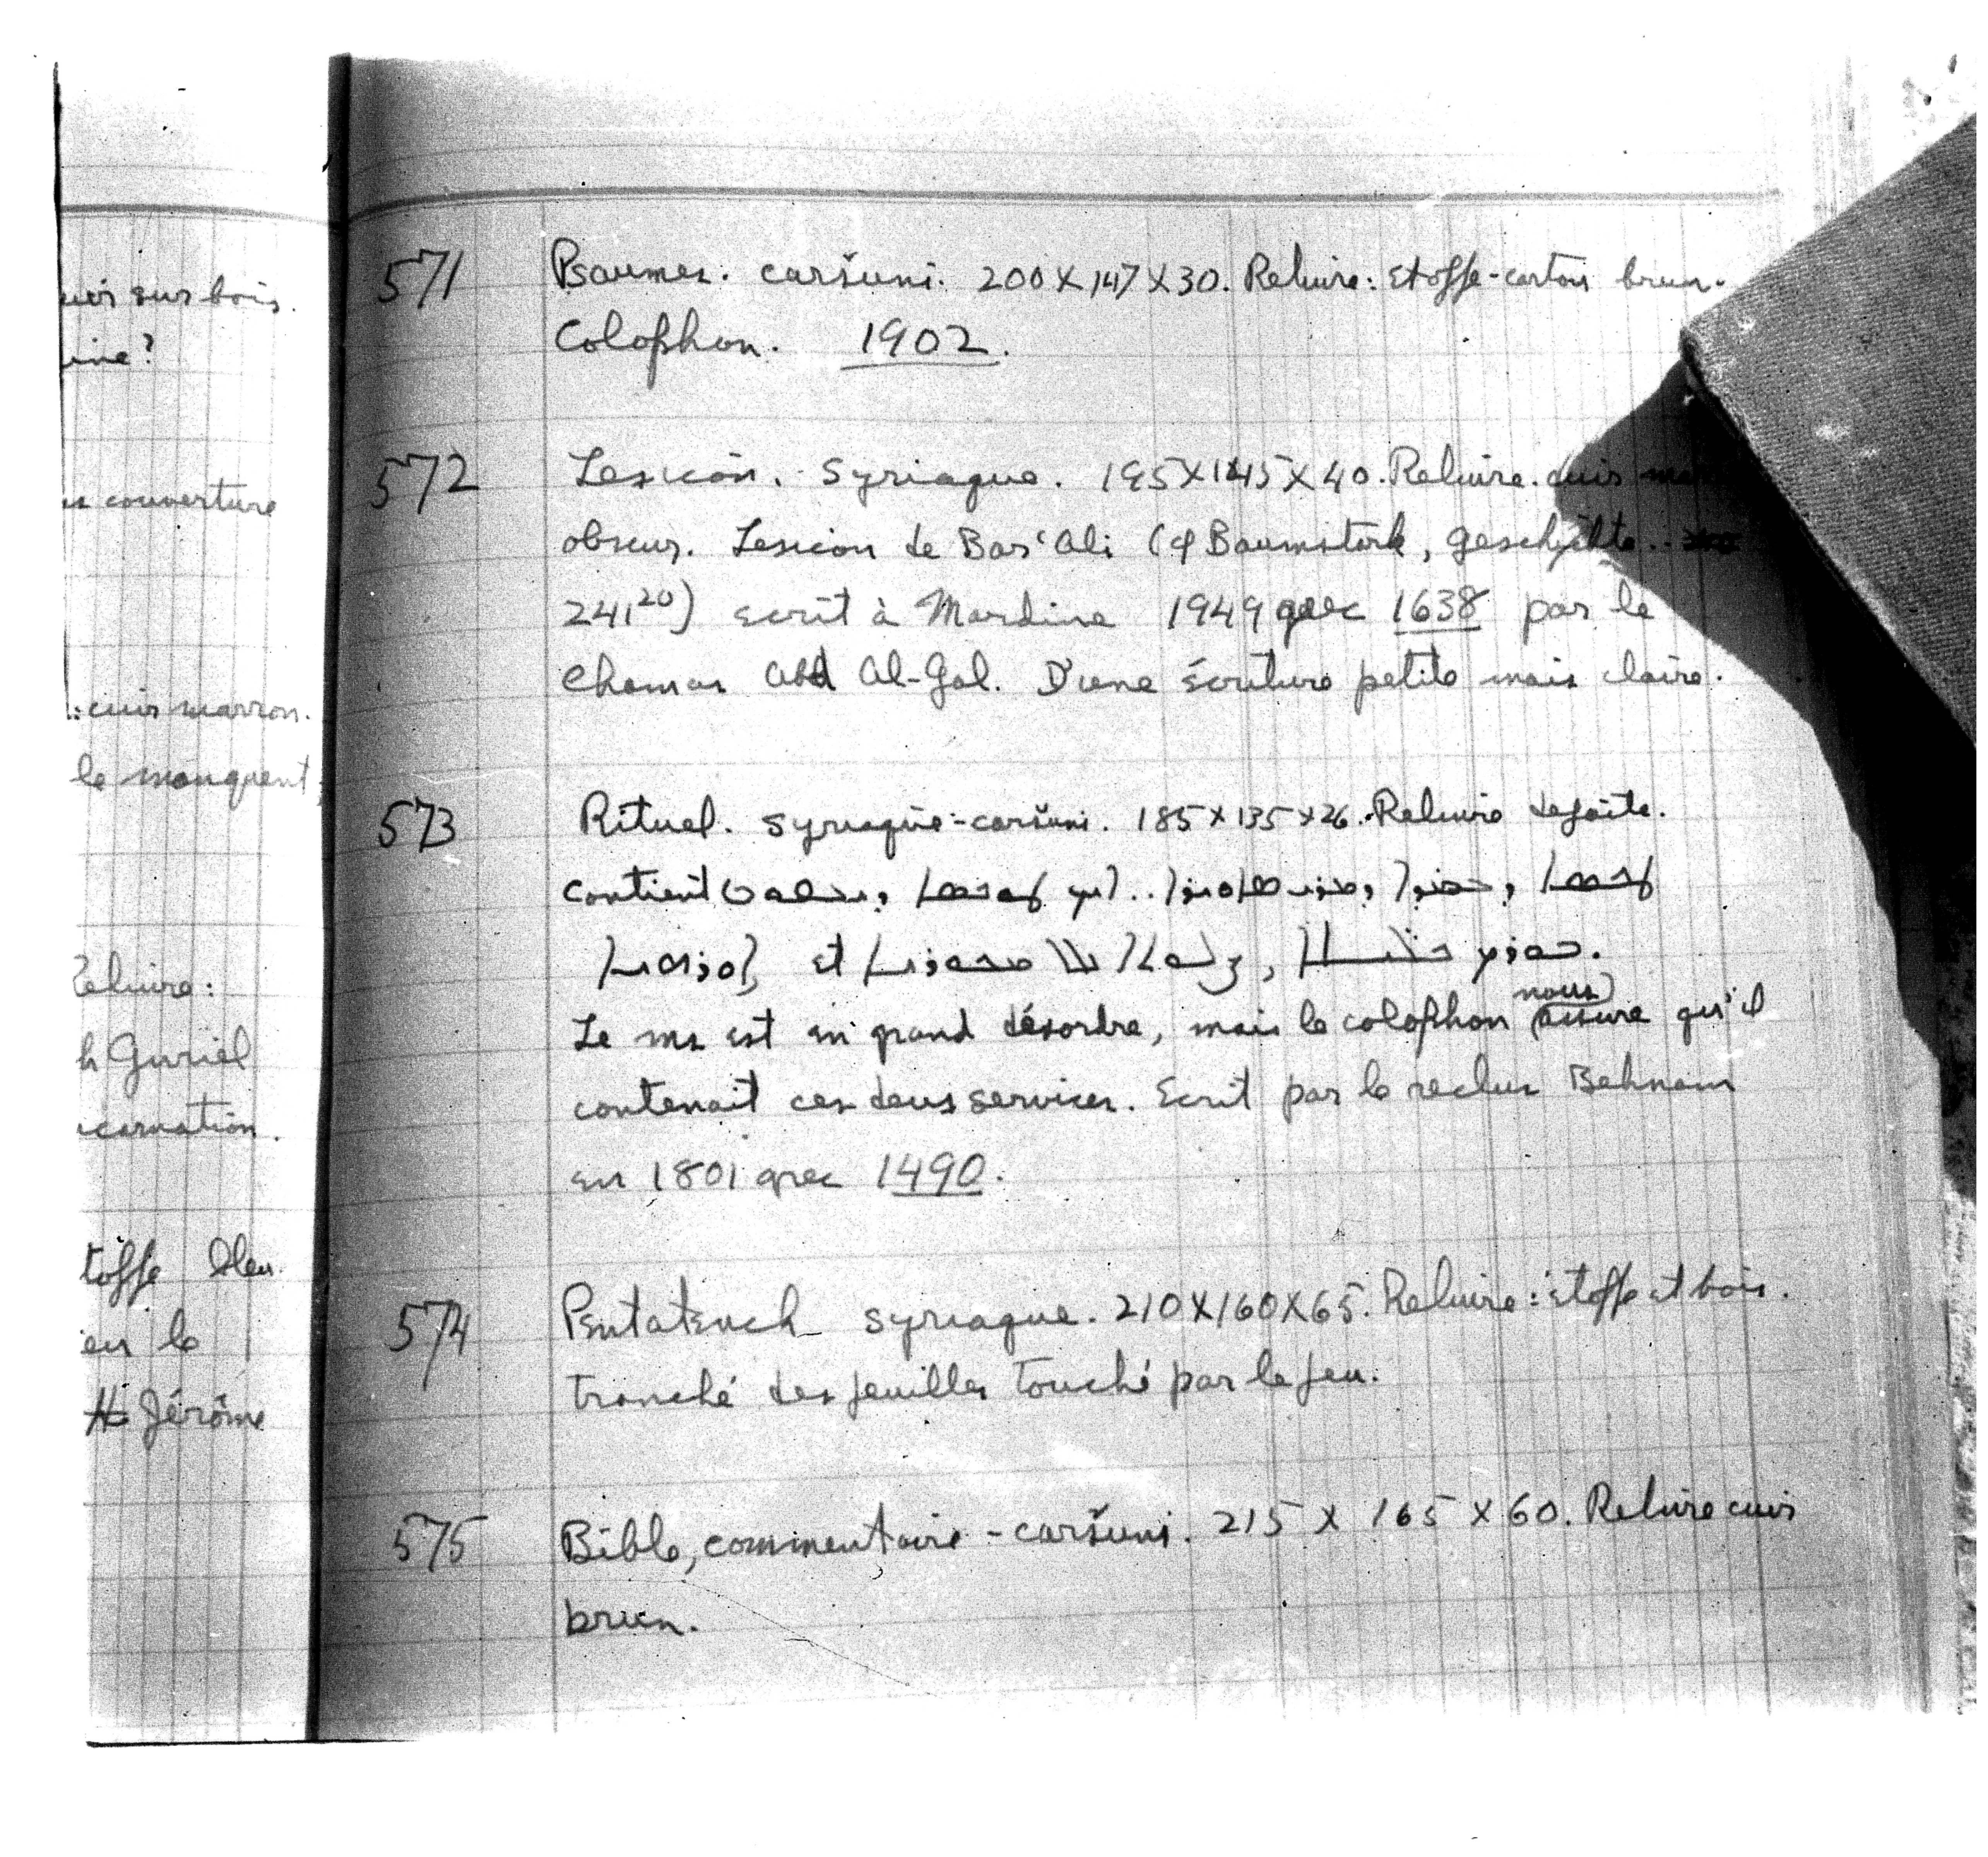 uir sur bois.
ine?
couverture
: cuir marron.
le manquent
Reluire:
h Guriel
carnation.
toffe bleu.
en le
Jérôme
571 Psaumes. caršuni. 200 X 147 X 30. Reluire: Etoffe-carton brun.
Colophon. 1902.
572 Lexicon. Syriaque. 195 X 145 X 40. Reluire. cuir
obscur. Lexicon de Bar 'Ali (cf Baumstark, Geschichte..
241²⁰) écrit à Mardine 1949 grec 1638 par le
Chamas Abd Al-Gal. D'une écriture petite mais claire.
573 Rituel. Syriaque-caršuni. 185 X 135 X 26. Reluire defaite.
contient
et
Le ms est en grand désordre, mais le colophon nous assure qu'il
contenait ces deux services. Ecrit par le reclus Behnam
en 1801 grec 1490.
574 Pentateuch syriaque. 210 X 160 X 65. Reluire: étoffe et bois.
tranché des feuilles touché par le feu.
575 Bible, commentaire - caršuni. 215 X 165 X 60. Reluire cuir
brun.